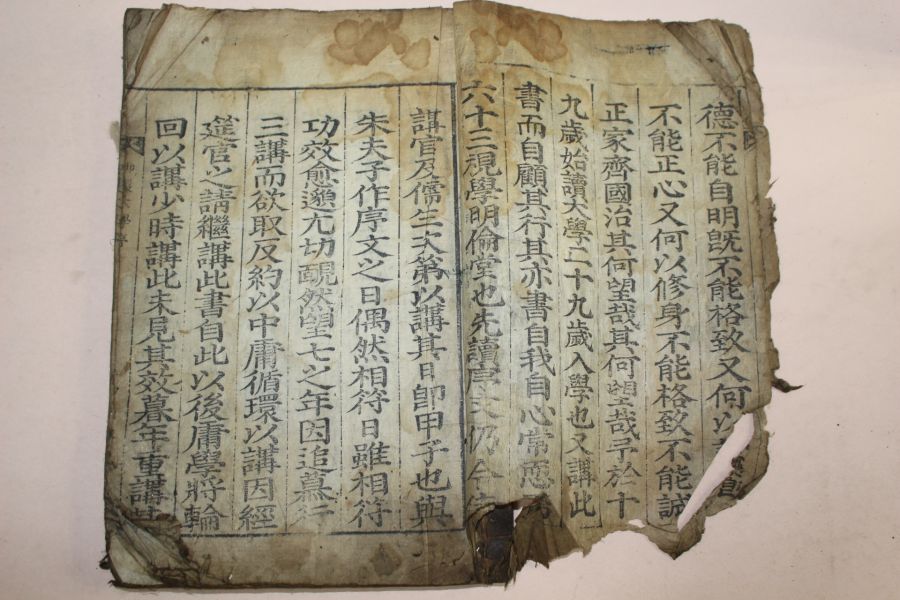 德不能自明旣不能格致又何以
不能正心又何以修身不能格致不能誠
正家齊國治其何望哉其何望哉予於十
九歲始讀大學二十九歲入學也又講此
書而自顧其行其亦書自我自心常恧
六十三視學明倫堂也先讀序文仍令
講官及儒生次第以講其日卽甲子也與
朱夫子作序文之日偶然相符日雖相符
功效愈邈尤切靦然望七之年因追慕行
三講而欲取反約以中庸循環以講因經
筵官之請繼講此書自此以後庸學將輪
回以講少時講此未見其效暮年重講